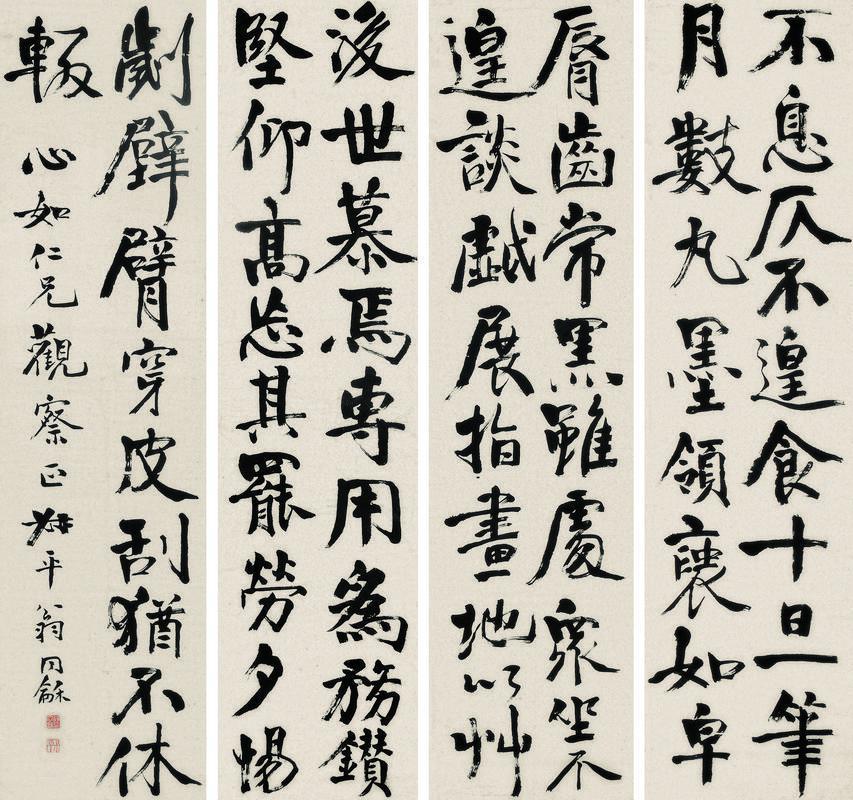 不息仄不遑食十日一筆
月數丸墨領褏如皁
脣齒常黑雖處眾坐不
遑談戲展指畫地以艸
後世慕焉專用為務鑽
堅仰高忘其罷勞夕惕
劌壁臂穿皮刮猶不休
輟
心如仁兄觀察正 叔平翁同龢